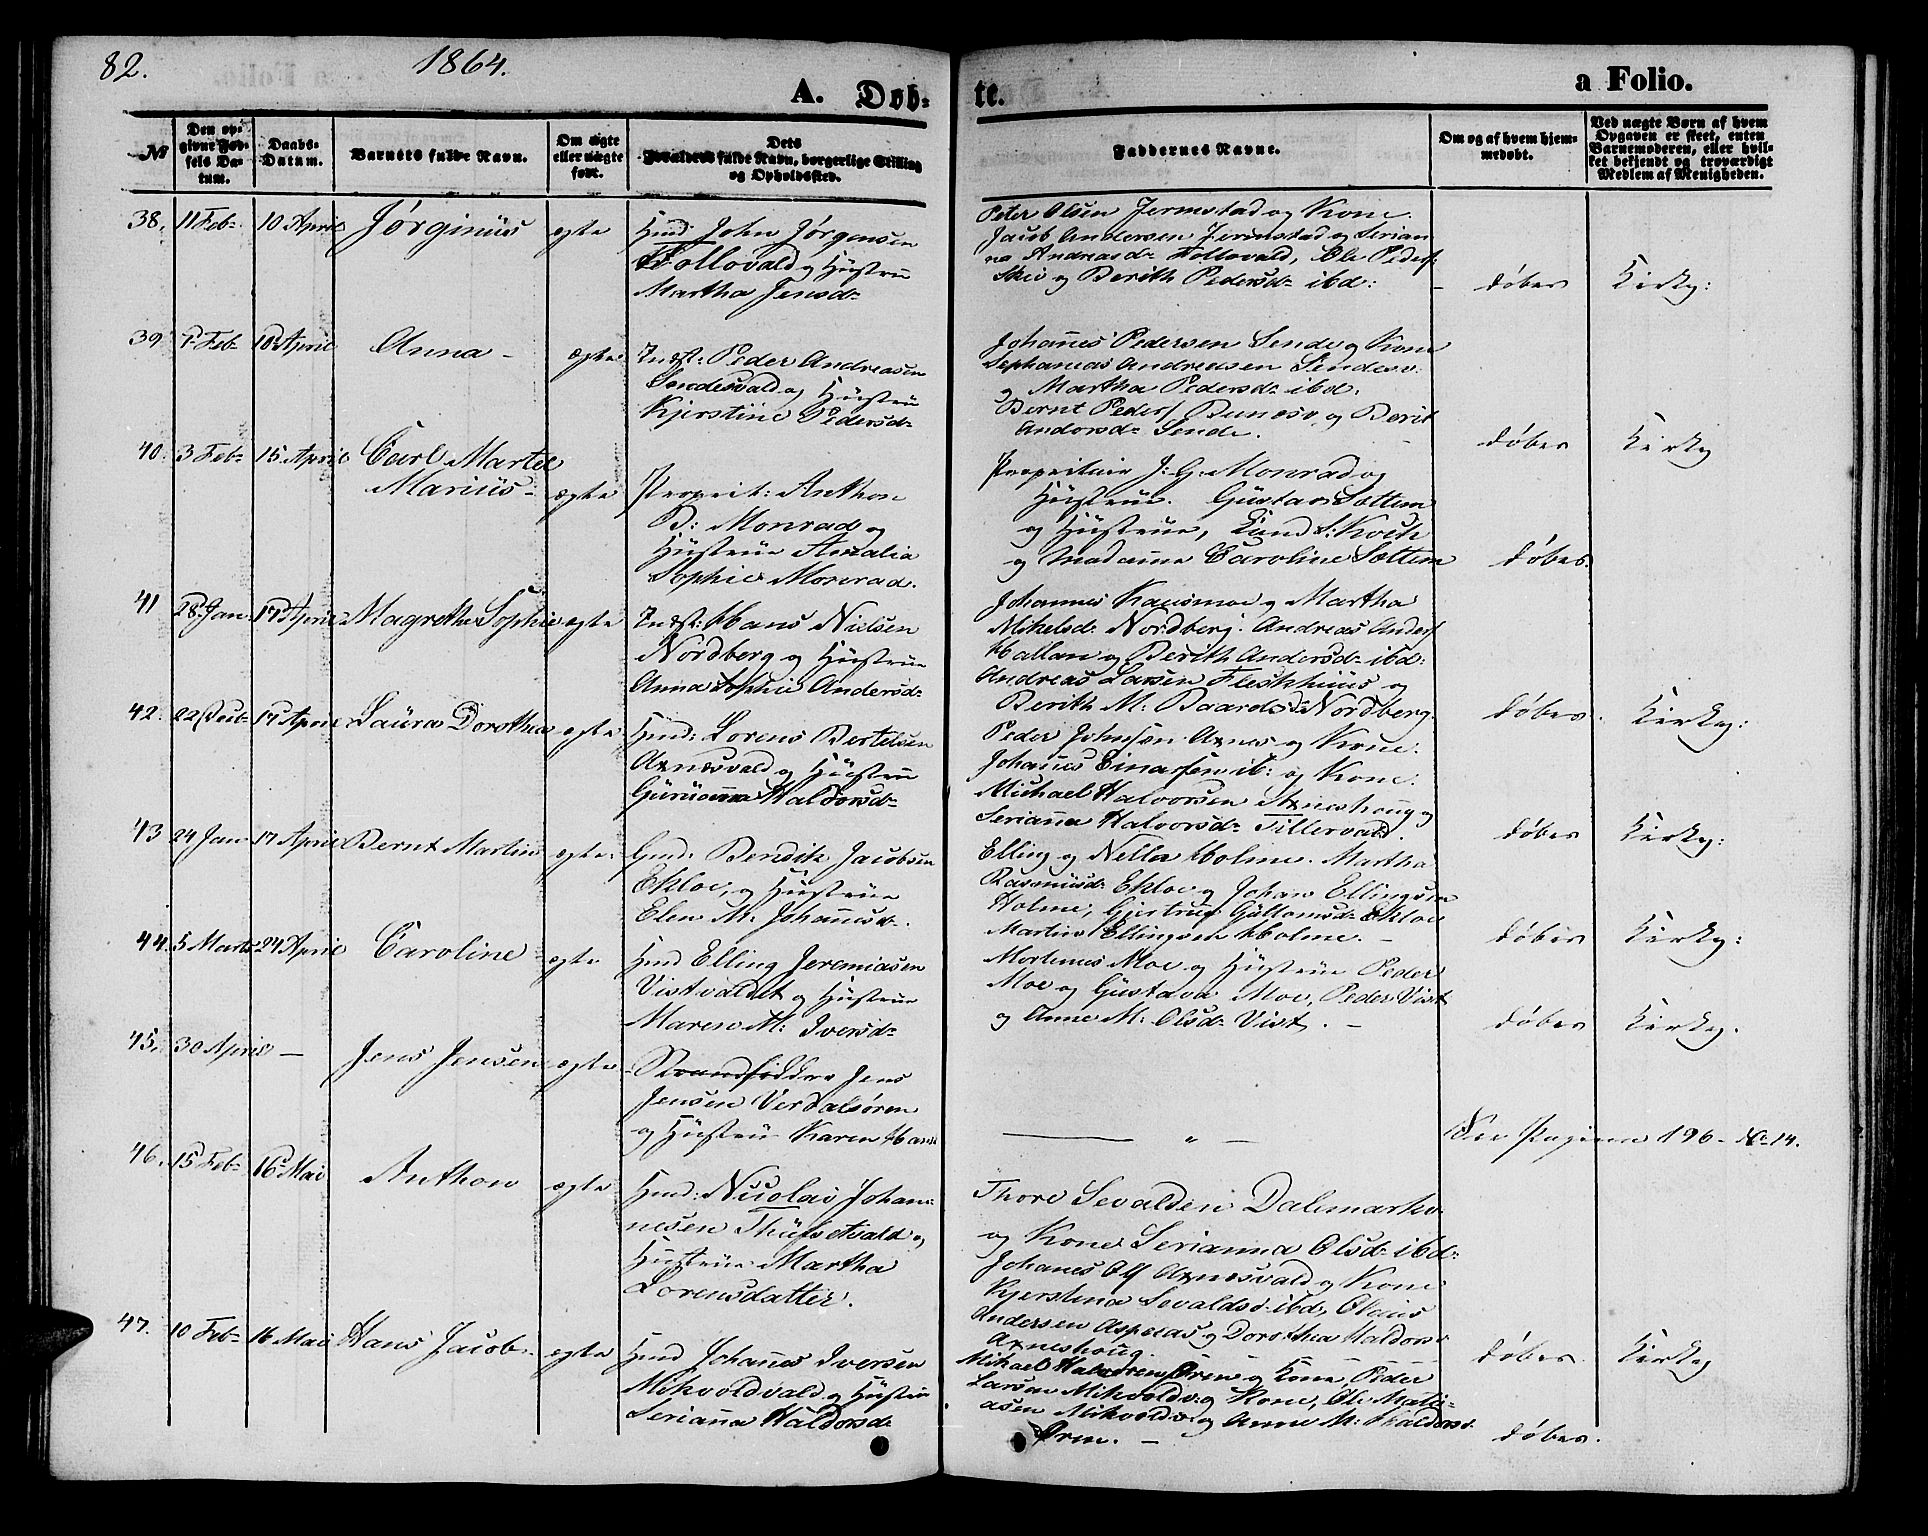 82. 1864.
A. Døb-
te. a Folio.
№
Den op-
givne Fød-
sels Da-
tum.
Daabs-
Datum.
Barnets fulde Navn.
Om ægte
eller uægte
født.
Dets
Forældres fulde Navn, borgerlige Stilling
og Opholdssted.
Faddernes Navne.
Om og af hvem hjem-
medøbt.
Ved uægte Børn af hvem
Opgaven er skeet, enten
Barnemoderen, eller hvil-
ket bekjendt og troværdigt
Medlem af Menigheden.
38. 11 Feb: 10 April Jørginus ægte
Huusmd: John Jørgensen
Follovald og Hustru
Martha Jensd:
Peter Olsen Jermstad og Kone.
Jacob Andersen Jermstad og Serian
na Andreasd: Follovald, Ole Peders:
og Berith Pedersd: ibd:
døbes Kirky:
39 7 Feb: 10 April Anna ægte
Indst: Peder Andreasen
Sendesvald og Hustru
Kjerstine Pedersd:
Johannes Pedersen Sende og Kone
Sephanias Andreasen Sendesv:
og Martha Pedersd: ibd.
Bernt Peders og Berit
Andorsd: Sende.
døbes Kirky
40. 3 Feb: 15 April Carl Martel
Marius ægte
Proprit: Anthon
B: Monrad og
Hustrue Amalia
Sophie Monrad.
Propritair J: G: Monrad og
Hustrue. Gustav Sættem
og Hustrue, Cand S: Koch
og Madame Caroline Sættem
døbes.
41 28 Jan 17 April Magrethe Sophie ægte
Indst: Hans Nielsen
Nordberg og Hustrue
Anna Sophie Andersd:
Johannes Kausmoe og Martha
Mikelsd: Nordberg. Andreas Anders
Hallan og Berith Andersd: ibd:
Andreas Larsen Fleskhuus og
Berith M: Baardsd: Nordberg.
døbes. Kirky:
42. 22 Feb: 17 April Laura Dorothea ægte
Huusmd: Lorens Bertelsen
Axnesvald og Hustru
Guruanna Haldorsd:
Peder Johnsen Axnes og Kone.
Johanes Einarsen ib: og Kone.
Michael Halvorsen Axneshoug og
Serianna Halvorsd: Tillervald.
døbes Kirky:
43 24 Jan 17 April Bernt Martin ægte.
Gmd: Bendik Jacobsen
Ekloe, og Hustrue
Elen M: Johannesd:
Elling og Nella Holme. Martha
Rasmusd: Ekloe og Johan Ellingsen
Holme, Gjertrug Guttomsd: Ekloe
Martin Ellingsen Holme.
døbes Kirky:
44. 5 Marts 24 April Caroline ægte
Hmd Elling Jeremiasen
Vistvaldet og Hustrue
Maren M: Iversd:
Mortenus Moe og Hustrue Peder
Moe og Gustava Moe, Peder Vist
og Anne M: Olsd: Vist.
døbes Kirky.
45. 30 April — Jens Jensen ægte
Strandsidder Jens
Jensen Verdalsøren
og Hustru Karen Hans
— " —
See Pagina 196 № 14.
46. 15 Feb: 16 Mai Anthon ægte
Hmd: Nicolai Johan-
nesen Thufsetvald og
Hustrue Martha
Lorensdatter.
Thore Sevaldsen Dalemarkv:
og Kone Serianna Olsd: ibd:
Johanes Ols Axnesvald og Kone
Kjerstina Sevaldsd: ibd, Olaus
Andersen Aspenas og Dorothea Haldorsd
Axneshoug.
døbes. Kirky
47. 10 Feb: 16 Mai Hans Jacob ægte
Hmd Johannes Iversen
Mikvoldvald og Hustru
Serianna Haldorsd:
Mikael Halvorsen Ørens og Kone, Peder
Larsen Mikvoldv: og Kone, Ole Mati-
asen Mikvoldv: og Anne M: Haldorsd
Øren.
døbes.